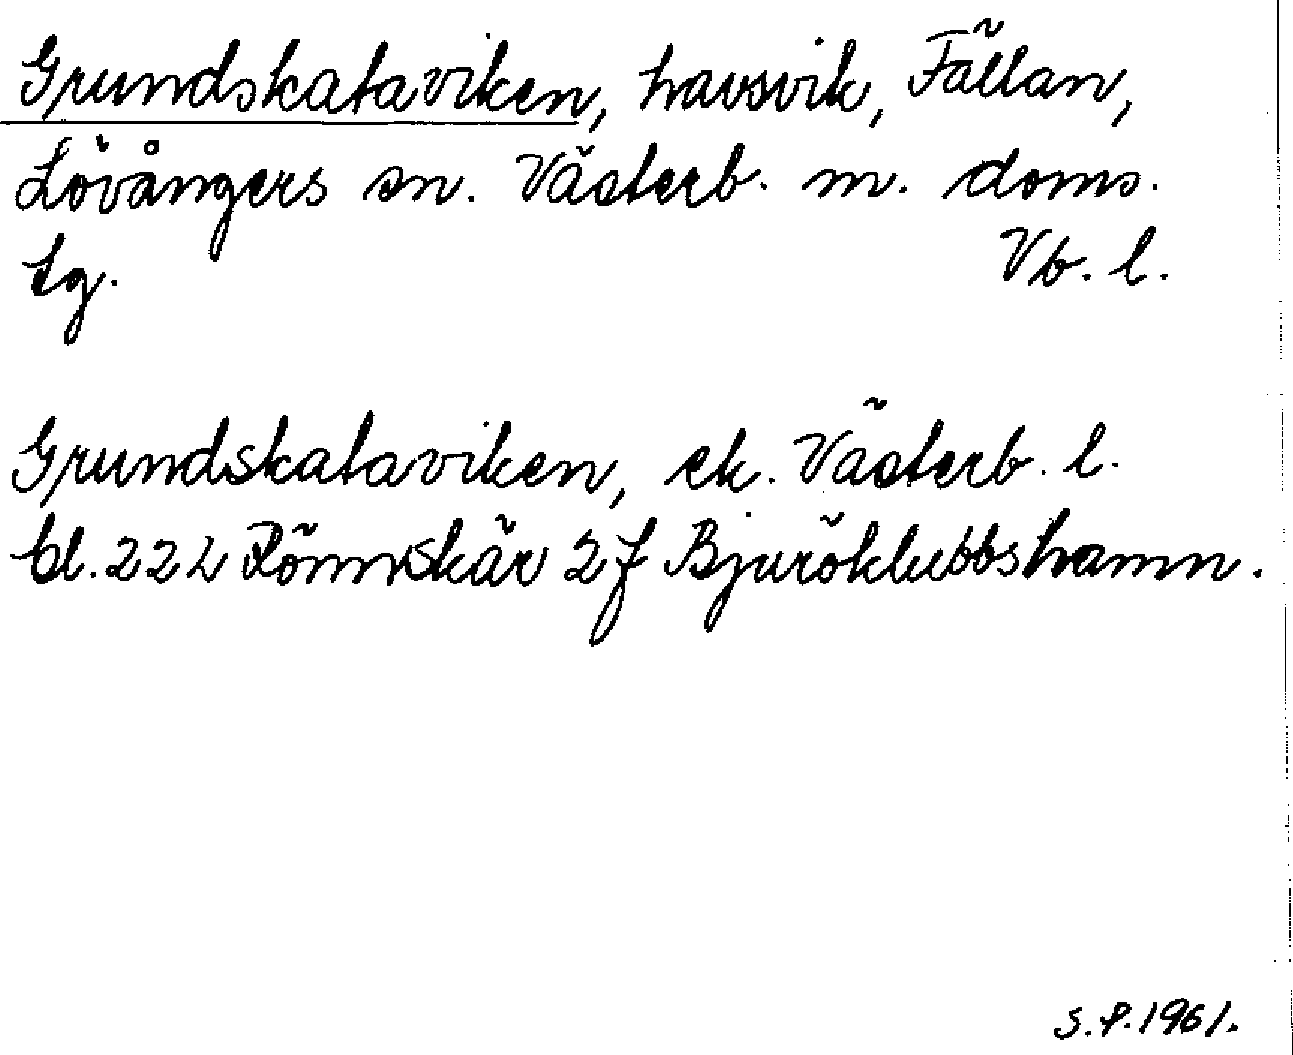 Grundskataviken, havsvik, Fällan,
Lövångers sn. Västerb. m. doms.
tg. Vb. l.
Grundskataviken, ek. Västerb. l.
bl. 222 Rönnskär 2f Bjuröklubbshamn.
S.P. 1961.